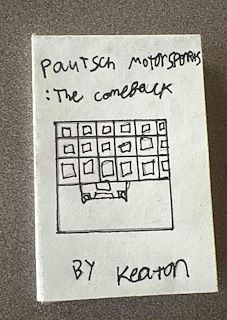 Pautsch motorsports
: The comeback
BY Keaton